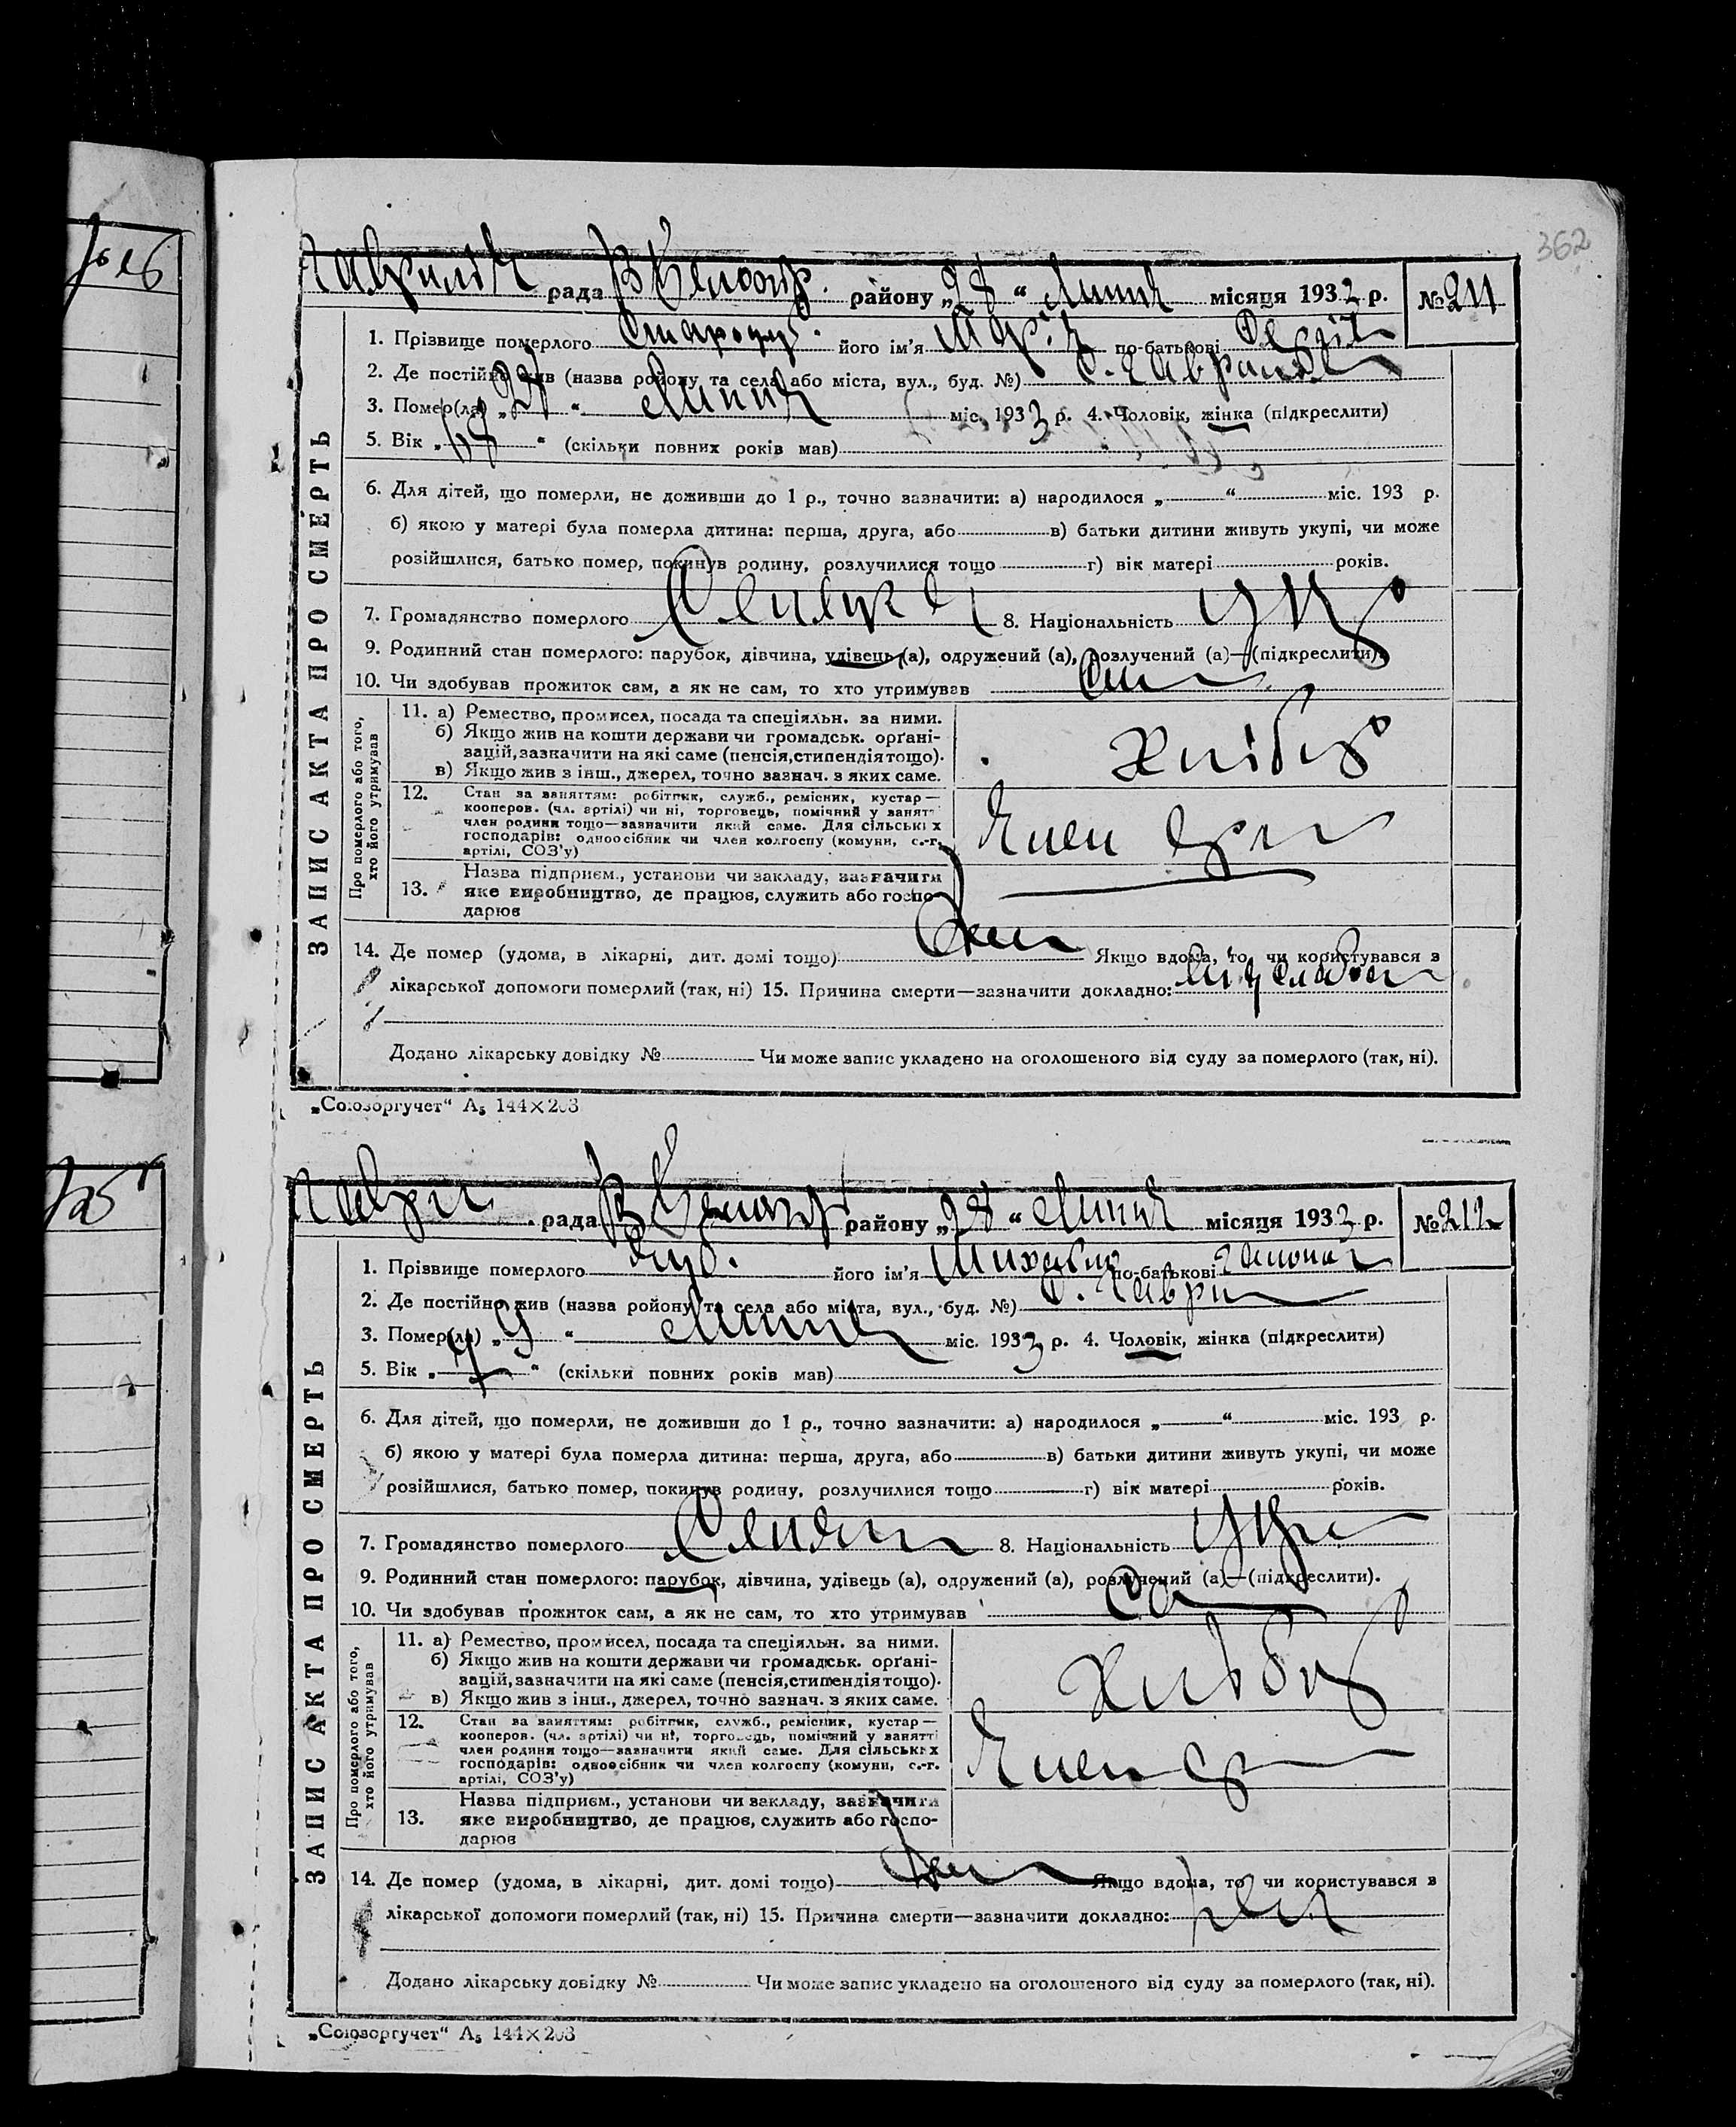 362
рада району „28“ Липня місяця 1933 р. № 211
ЗАПИС АКТА ПРО СМЕРТЬ
1. Прізвище померлого його ім'я Марія по-батькові
2. Де постійно жив (назва району та села або міста, вул., буд. №) с.
3. Помер(ла) „ “ Липня міс. 1933 р. 4. Чоловік, жінка (підкреслити)
5. Вік „ “ (скільки повних років мав)
6. Для дітей, що померли, не доживши до 1 р., точно зазначити: а) народилося „ “ міс. 193 р.
б) якою у матері була померла дитина: перша, друга, або в) батьки дитини живуть укупі, чи може
розійшлися, батько помер, покинув родину, розлучилися тощо г) вік матері років.
7. Громадянство померлого 8. Національність Укр
9. Родинний стан померлого: парубок, дівчина, удівець (а), одружений (а), розлучений (а)—(підкреслити).
10. Чи здобував прожиток сам, а як не сам, то хто утримував
Про померлого або того, хто його утримував
11. а) Ремество, промисел, посада та спеціяльн. за ними.
б) Якщо жив на кошти держави чи громадськ. орґані-
зацій, зазначити на які саме (пенсія, стипендія тощо).
в) Якщо жив з інш., джерел, точно зазнач. з яких саме.
Хлібор
12. Стан за заняттям: робітник, служб., ремісник, кустар—
кооперов. (чл. артілі) чи ні, торговець, помічний у занятті
член родини тощо—зазначити який саме. Для сільських
господарів: одноосібник чи член колгоспу (комуни, с.-г.
артілі, СОЗ'у)
Член
13. Назва підприєм., установи чи закладу, зазначити
яке виробництво, де працює, служить або госпо-
дарює
14. Де помер (удома, в лікарні, дит. домі тощо) Якщо вдома, то чи користувався з
лікарської допомоги померлий (так, ні) 15. Причина смерти—зазначити докладно:
Додано лікарську довідку № Чи може запис укладено на оголошеного від суду за померлого (так, ні).
„Союзоргучет“ А5 144×203
рада району „28“ Липня місяця 1933 р. № 212
ЗАПИС АКТА ПРО СМЕРТЬ
1. Прізвище померлого його ім'я Михайло по-батькові
2. Де постійно жив (назва району та села або міста, вул., буд. №) с. Гаври
3. Помер(ла) „ “ Липня міс. 1933 р. 4. Чоловік, жінка (підкреслити)
5. Вік „ “ (скільки повних років мав)
6. Для дітей, що померли, не доживши до 1 р., точно зазначити: а) народилося „ “ міс. 193 р.
б) якою у матері була померла дитина: перша, друга, або в) батьки дитини живуть укупі, чи може
розійшлися, батько помер, покинув родину, розлучилися тощо г) вік матері років.
7. Громадянство померлого 8. Національність Укр
9. Родинний стан померлого: парубок, дівчина, удівець (а), одружений (а), розлучений (а)—(підкреслити).
10. Чи здобував прожиток сам, а як не сам, то хто утримував
Про померлого або того, хто його утримував
11. а) Ремество, промисел, посада та спеціяльн. за ними.
б) Якщо жив на кошти держави чи громадськ. орґані-
зацій, зазначити на які саме (пенсія, стипендія тощо).
в) Якщо жив з інш., джерел, точно зазнач. з яких саме.
Хлібор
12. Стан за заняттям: робітник, служб., ремісник, кустар—
кооперов. (чл. артілі) чи ні, торговець, помічний у занятті
член родини тощо—зазначити який саме. Для сільських
господарів: одноосібник чи член колгоспу (комуни, с.-г.
артілі, СОЗ'у)
Член
13. Назва підприєм., установи чи закладу, зазначити
яке виробництво, де працює, служить або госпо-
дарює
14. Де помер (удома, в лікарні, дит. домі тощо) Якщо вдома, то чи користувався з
лікарської допомоги померлий (так, ні) 15. Причина смерти—зазначити докладно:
Додано лікарську довідку № Чи може запис укладено на оголошеного від суду за померлого (так, ні).
„Союзоргучет“ А5 144×203